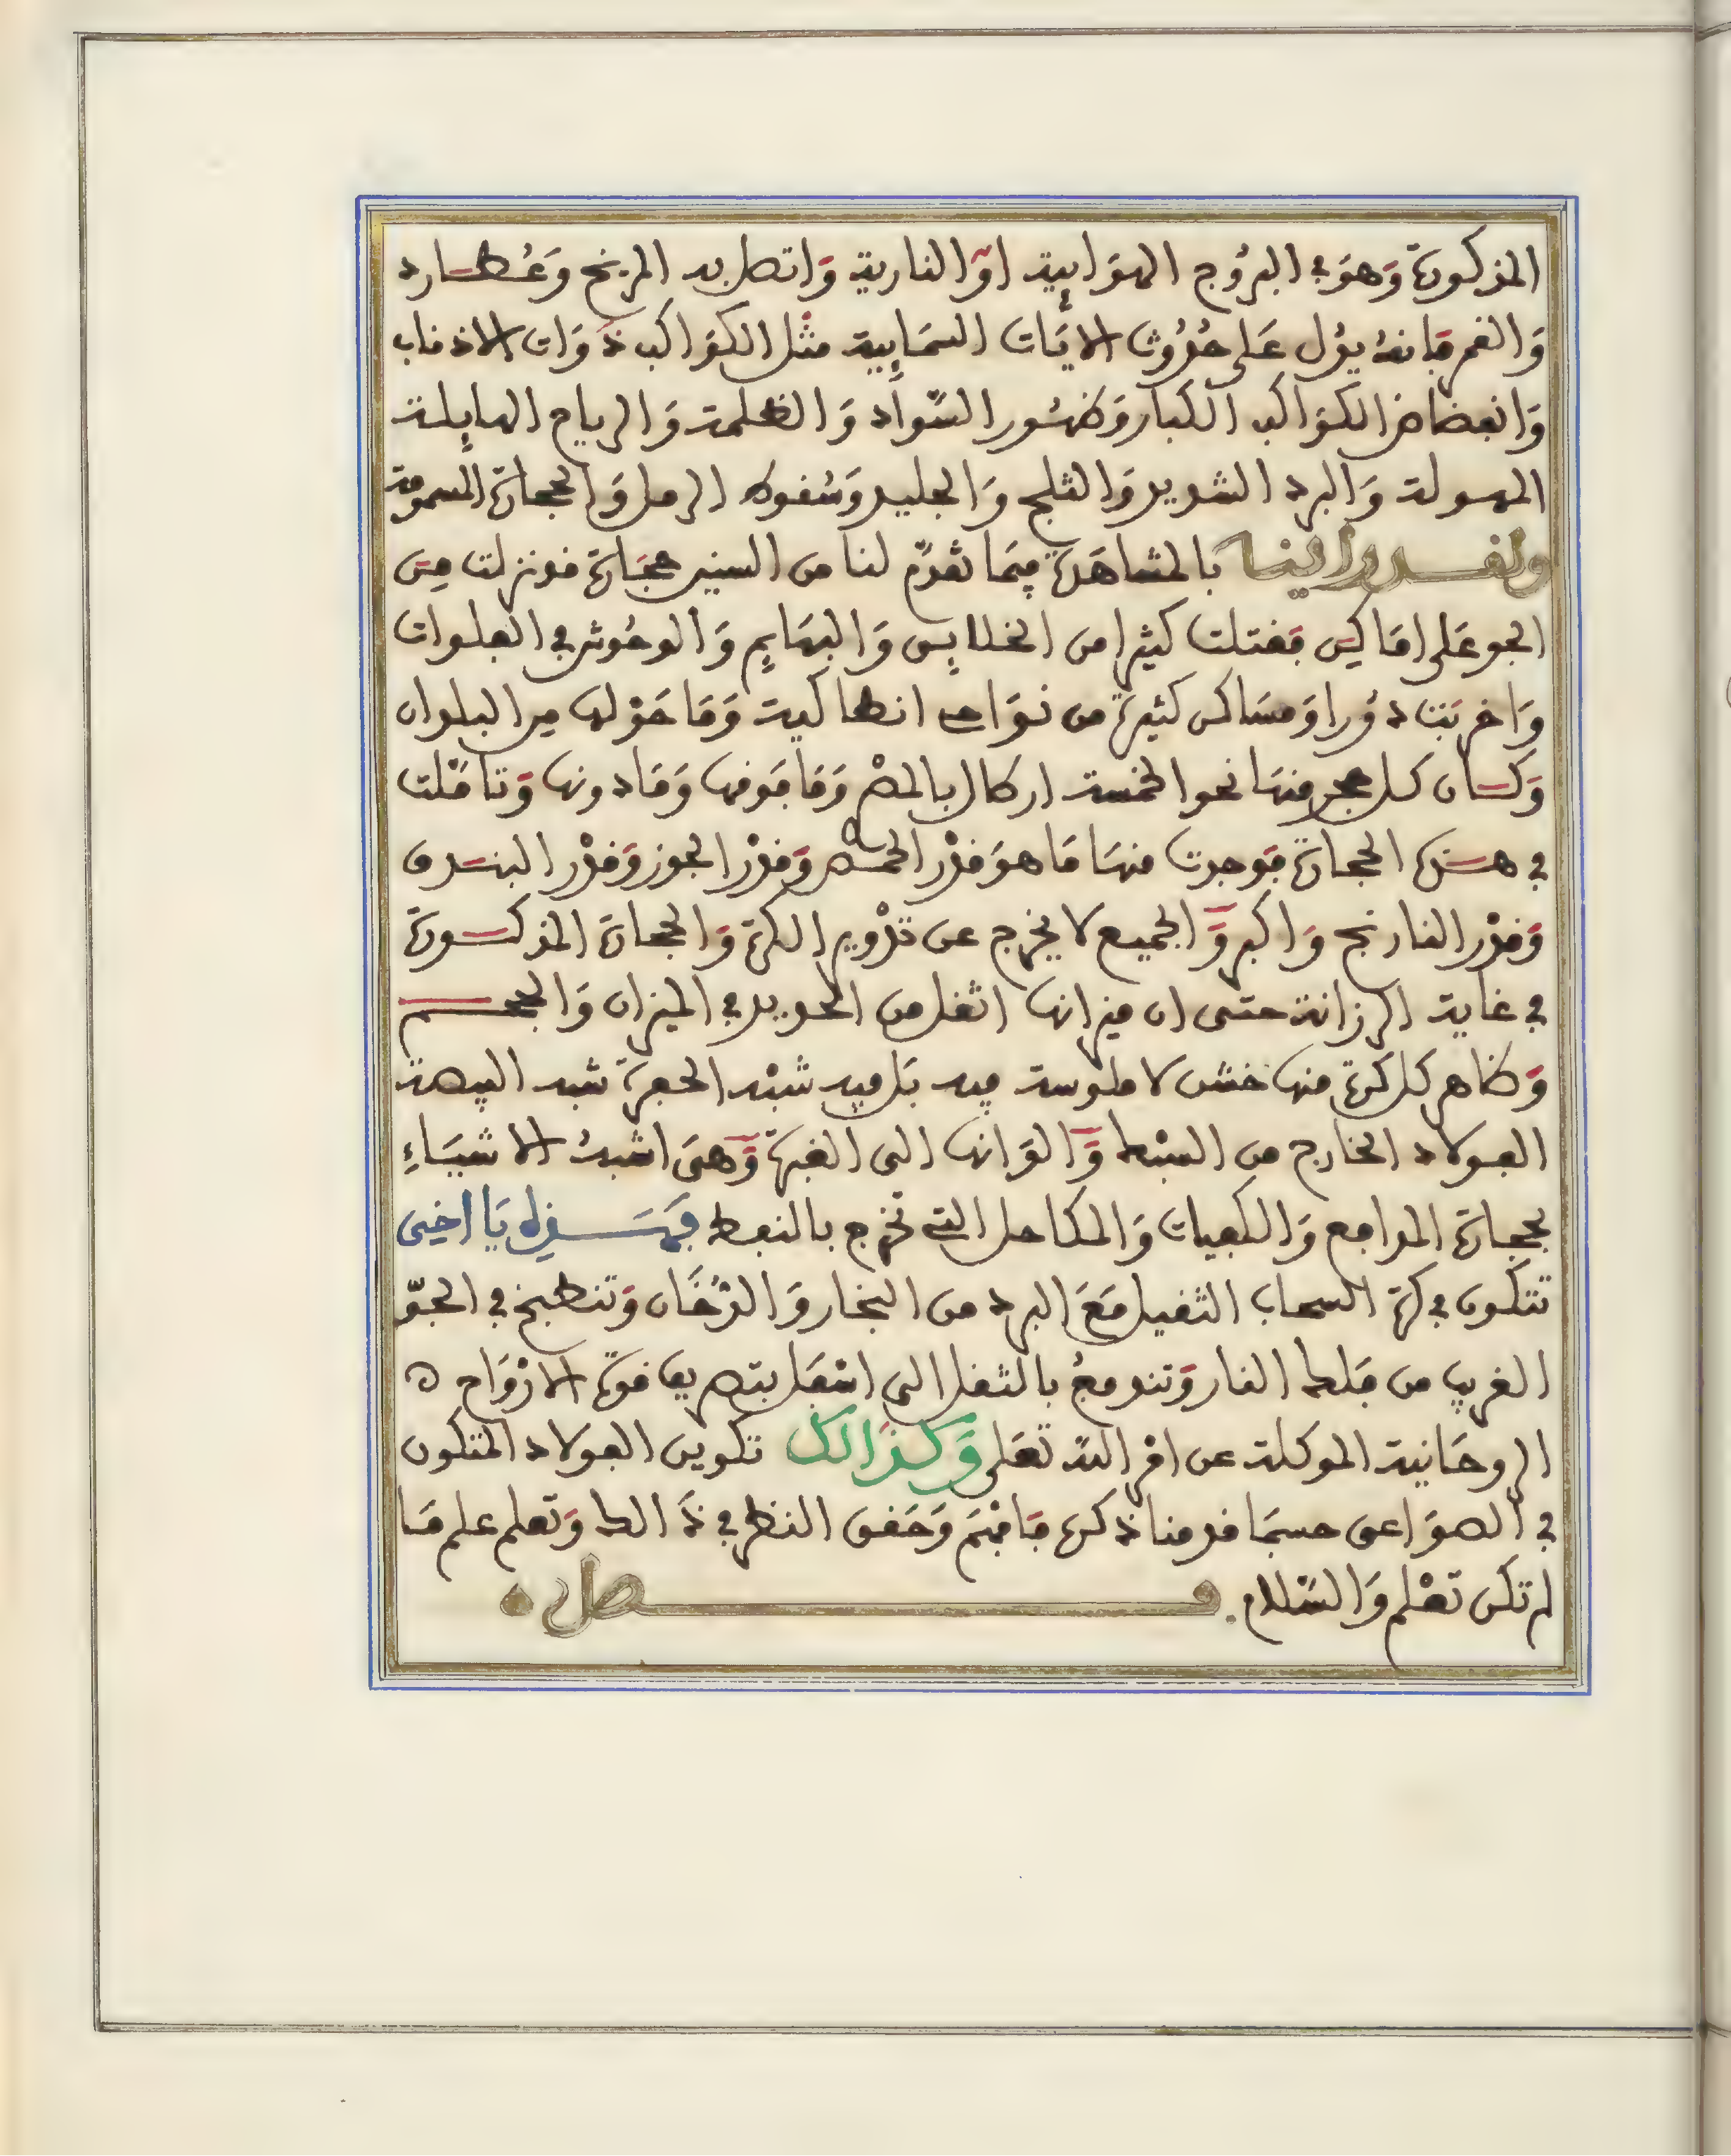 المذكورة وَهوَ في البرُوج الهوَايِية اوِ النارية وَاتصل به المريخ وَعُطارد
وَالقمر فإنهُ يدُل عَلى حُدُوث الايَات السمَايِية مثْل الكوَاكب ذوَات الاذناب
وَانقضاض الكوَاكب الكبار وَظهُور السّوَاد وَالظلمة وَالرياح الهايِلة
المهولة وَالبرد الشديد وَالثلج وَالجليد وَسُقوط الرمل وَالحجارة المسمومة
ولقد راينا بالمشاهَدة فِيمَا تقدّم لنا من السنين حجَارة قد نزلت مِن
الجو عَلى امَاكِن فقتلت كثيرا من الخلايِق وَالبهَايِم وَالوحُوش في الفلوات
وَاخرَبَت دُورا وَمسَاكن كثيرة من نوَاحي انطاكية وَمَا حَوْلها مِن البلدان
وَكان كل حجر منهَا نحو الخمسة ارطال بالمصْري وَمَا فَوقها وَمَا دونها وَتامّلت
في هذه الحجارة فوَجدت منهَا مَا هوَ قدْر الحمّص وَقدْر الجوز وَقدْر البندق
وَقدْر النارنج وَاكبر وَالجميع لا يخرج عن تدْوير الكرة وَالحجارة المذكورة
في غاية الرزانة حتى ان ميزانها اثقل من الحديد في الميزان وَالحجم
وَظاهر كل كرة منها خشن لا ملوسة فيه بَل فيه شبْه الحفرة شبه البيضة
الفولاد الخارج من السبْط وَالوَانها الى الغبرة وَهىَ اشبهُ الاشيَاءِ
بحجارة المدافع وَالكفيات وَالمكاحل التي تخرج بالنفط فهَذه يَا اخِي
تتكون في كرة السحاب الثقيل مَعَ البرد من البخار وَالدُّخَان وَتنطبخ في الجوّ
الغريب من فلك النار وَتندفعُ بالثقل الى اسْفَل بتصريف قوة الارْوَاح
الروحَانية الموكلة عن امْر الله تعَلى وَكذَالك تكوين الفولاد المتكون
في الصوَاعق حسبمَا قدمنا ذكره فافهَم وَحَقق النظر في ذَالك وَتعلم علم مَا
لم تكن تعْلم وَالسّلام. فصل